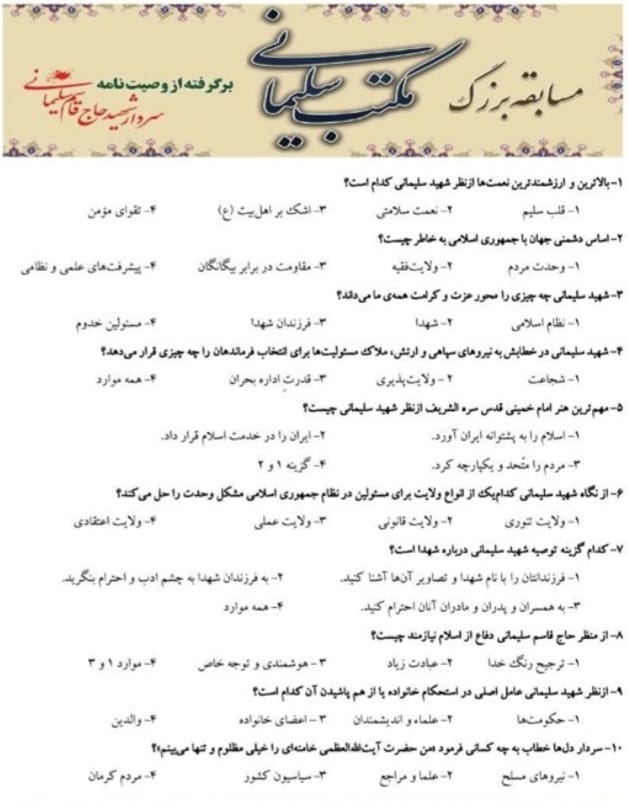 مسابقه بزرگ
مکتب سلیمانی
برگرفته از وصیت نامه
سردار شهید حاج قاسم سلیمانی
۱- بالاترین و ارزشمندترین نعمت‌ها ازنظر شهید سلیمانی کدام است؟
۱- قلب سلیم ۲- نعمت سلامتی ۳- اشک بر اهل‌بیت (ع) ۴- تقوای مؤمن
۲- اساس دشمنی جهان با جمهوری اسلامی به خاطر چیست؟
۱- وحدت مردم ۲- ولایت‌فقیه ۳- مقاومت در برابر بیگانگان ۴- پیشرفت‌های علمی و نظامی
۳- شهید سلیمانی چه چیزی را محور عزت و کرامت همه‌ی ما می‌داند؟
۱- نظام اسلامی ۲- شهدا ۳- فرزندان شهدا ۴- مسئولین خدوم
۴- شهید سلیمانی در خطابش به نیروهای سپاهی و ارتش، ملاک مسئولیت‌ها برای انتخاب فرماندهان را چه چیزی قرار می‌دهد؟
۱- شجاعت ۲- ولایت‌پذیری ۳- قدرتِ اداره بحران ۴- همه موارد
۵- مهم‌ترین هنر امام خمینی قدس سره الشریف ازنظر شهید سلیمانی چیست؟
۱- اسلام را به پشتوانه ایران آورد. ۲- ایران را در خدمت اسلام قرار داد.
۳- مردم را متّحد و یکپارچه کرد. ۴- گزینه ۱ و ۲
۶- از نگاه شهید سلیمانی کدام‌یک از انواع ولایت برای مسئولین در نظام جمهوری اسلامی مشکل وحدت را حل می‌کند؟
۱- ولایت تنوری ۲- ولایت قانونی ۳- ولایت عملی ۴- ولایت اعتقادی
۷- کدام گزینه توصیه شهید سلیمانی درباره شهدا است؟
۱- فرزندانتان را با نام شهدا و تصاویر آن‌ها آشنا کنید. ۲- به فرزندان شهدا به چشم ادب و احترام بنگرید.
۳- به همسران و پدران و مادران آنان احترام کنید. ۴- همه موارد
۸- از منظر حاج قاسم سلیمانی دفاع از اسلام نیازمند چیست؟
۱- ترجیح رنگ خدا ۲- عبادت زیاد ۳- هوشمندی و توجه خاص ۴- موارد ۱ و ۳
۹- ازنظر شهید سلیمانی عامل اصلی در استحکام خانواده یا از هم پاشیدن آن کدام است؟
۱- حکومت‌ها ۲- علماء و اندیشمندان ۳- اعضای خانواده ۴- والدین
۱۰- سردار دل‌ها خطاب به چه کسانی فرمود «من حضرت آیت‌الله‌العظمی خامنه‌ای را خیلی مظلوم و تنها می‌بینم»؟
۱- نیروهای مسلح ۲- علما و مراجع ۳- سیاسیون کشور ۴- مردم کرمان